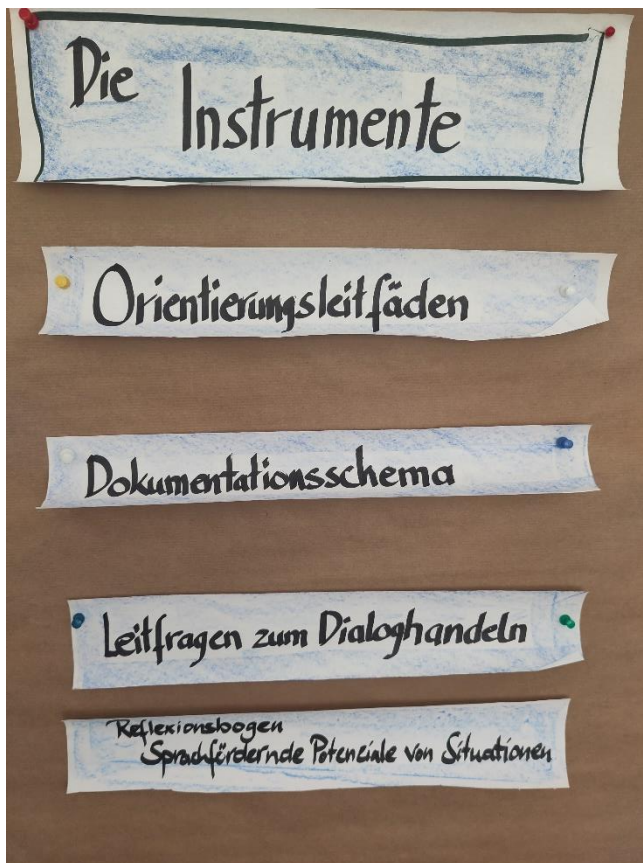 Die
Instrumente
Orientierungsleitfäden
Dokumentationsschema
Leitfragen zum Dialoghandeln
Reflexionsbogen
Sprachfördernde Potenziale von Situationen